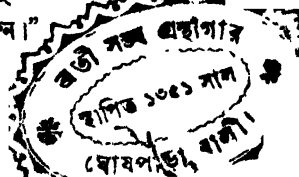 ন।”
ব্রতী সঙ্ঘ গ্রন্থাগার
স্থাপিত ১৩৫১ সাল
ঘোষপাড়া, বালী।